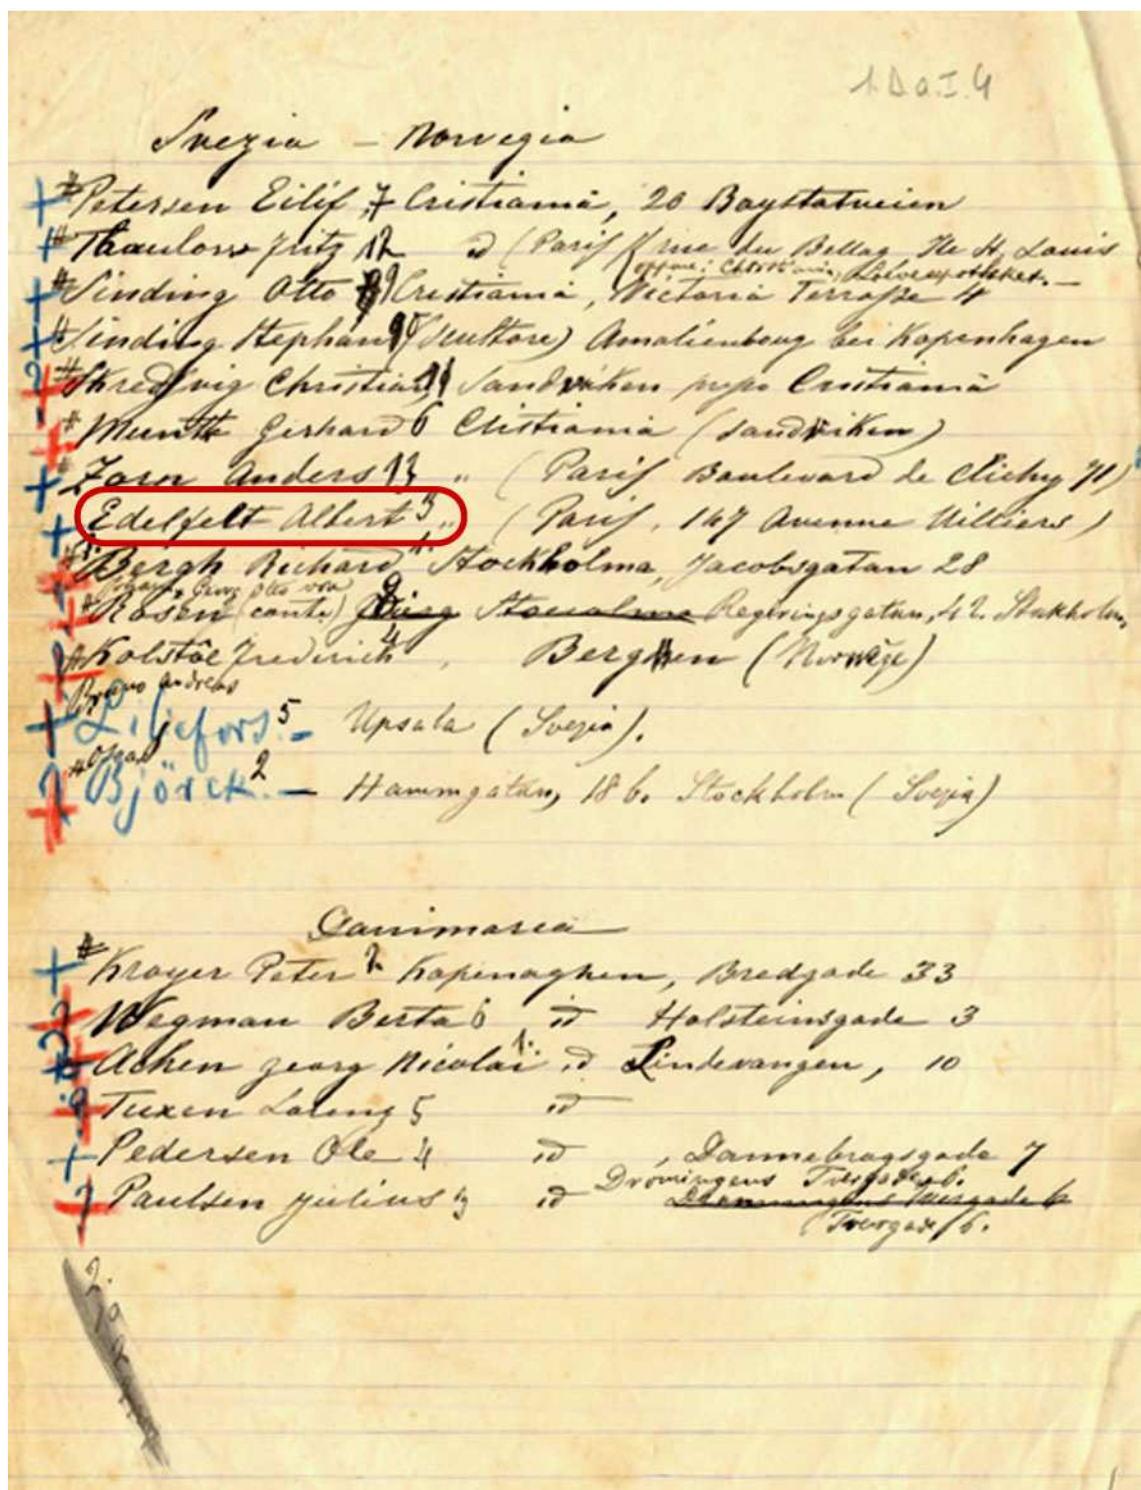 1 D a. I. 4
Svezia - Norvegia
# Petersen Eilif 7 Cristiania, 20 Baystatveien
# Thaulow Fritz 12 id (Paris rue du Bellay Ile St Louis
(oppure: Christiania,
# Sinding Otto 9 Cristiania, Victoria Terrasse 4
# Sinding Stephan (scultore) Amalienborg bei Kopenhagen
# Skredsvig Christian 11 Sandviken presso Cristiania
# Munthe Gerhard 6 Cristiania (Sandviken)
# Zorn Anders 13 " (Paris Boulevard de Clichy 71)
Edelfelt Albert 3 " (Paris, 147 Avenue Villiers)
# Bergh Richard 1. Stockholma, Jacobsgatan 28
Georg Otto von
# Rosen (conte) 8 Regeringsgatan, 42. Stokholm,
# Kolstöe Frederich 4, Bergen (Norwège)
Bruno Andreas
Liljefors. 5 - Upsala (Svezia).
# Oscar
Björck. 2 - Hammgatan, 18 b. Stockholm (Svezia)
Danimarca
# Kroyer Peter 2. Kopenaghen, Bredgade 33
Wegman Berta 6 id Holsteinsgade 3
Achen Georg Nicolai 1. id Lindevangen, 10
Tuxen Loreng 5 id
Pedersen Ole 4 id, Dannebrogsgade 7
Droningens Tvergade 6.
Paulsen Julius 3 id
(Tvergade 6.
2.